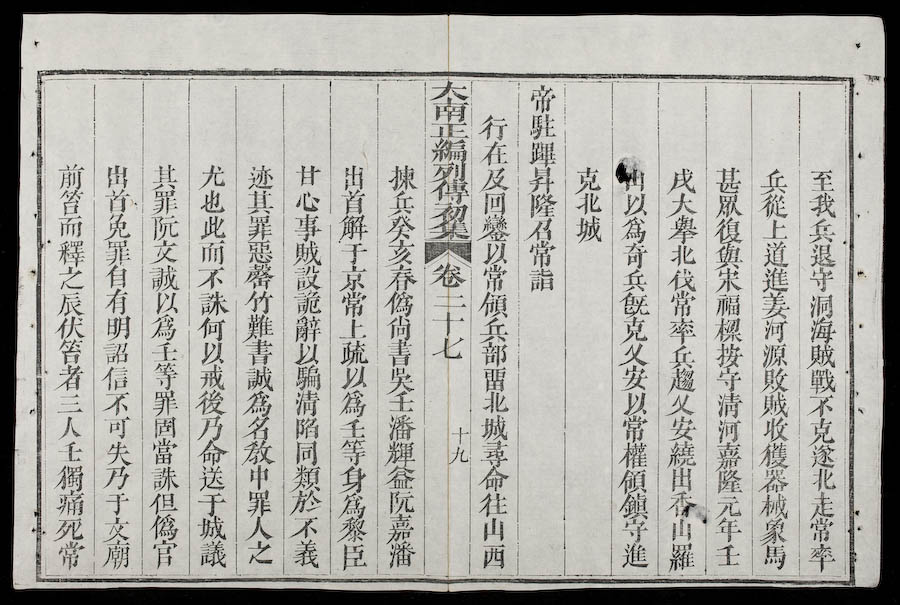 至我兵退守洞海賊戰不克遂北走常率
兵從上道進姜河源敗賊收獲器械象馬
甚眾復與宋福樑按守清河嘉隆元年壬
戌大舉北伐常率兵趨乂安繞出香山羅
山以為奇兵既克乂安以常權領鎮守進
克北城
帝駐蹕昇隆召常詣
行在及回鑾以常領兵部畱北城尋命往山西
大南正編列傳初集 卷二十七 十九
揀兵癸亥春偽尚書吳壬潘輝益阮嘉潘
出首解于京常上疏以為壬等身為黎臣
甘心事賊設詭辭以騙清陷同類於不義
迹其罪惡罄竹難書誠為名教中罪人之
尤也此而不誅何以戒後乃命送于城議
其罪阮文誠以為壬等罪固當誅但偽官
出首免罪自有明詔信不可失乃于文廟
前笞而釋之辰伏笞者三人壬獨痛死常